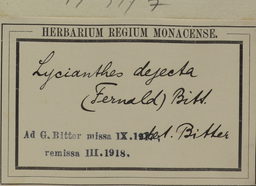 HERBARIUM REGIUM MONACENSE.
Lycianthes dejecta
(Fernald) Bitt.
Ad G. Bitter missa IX. det. Bitter
remissa III.1918.